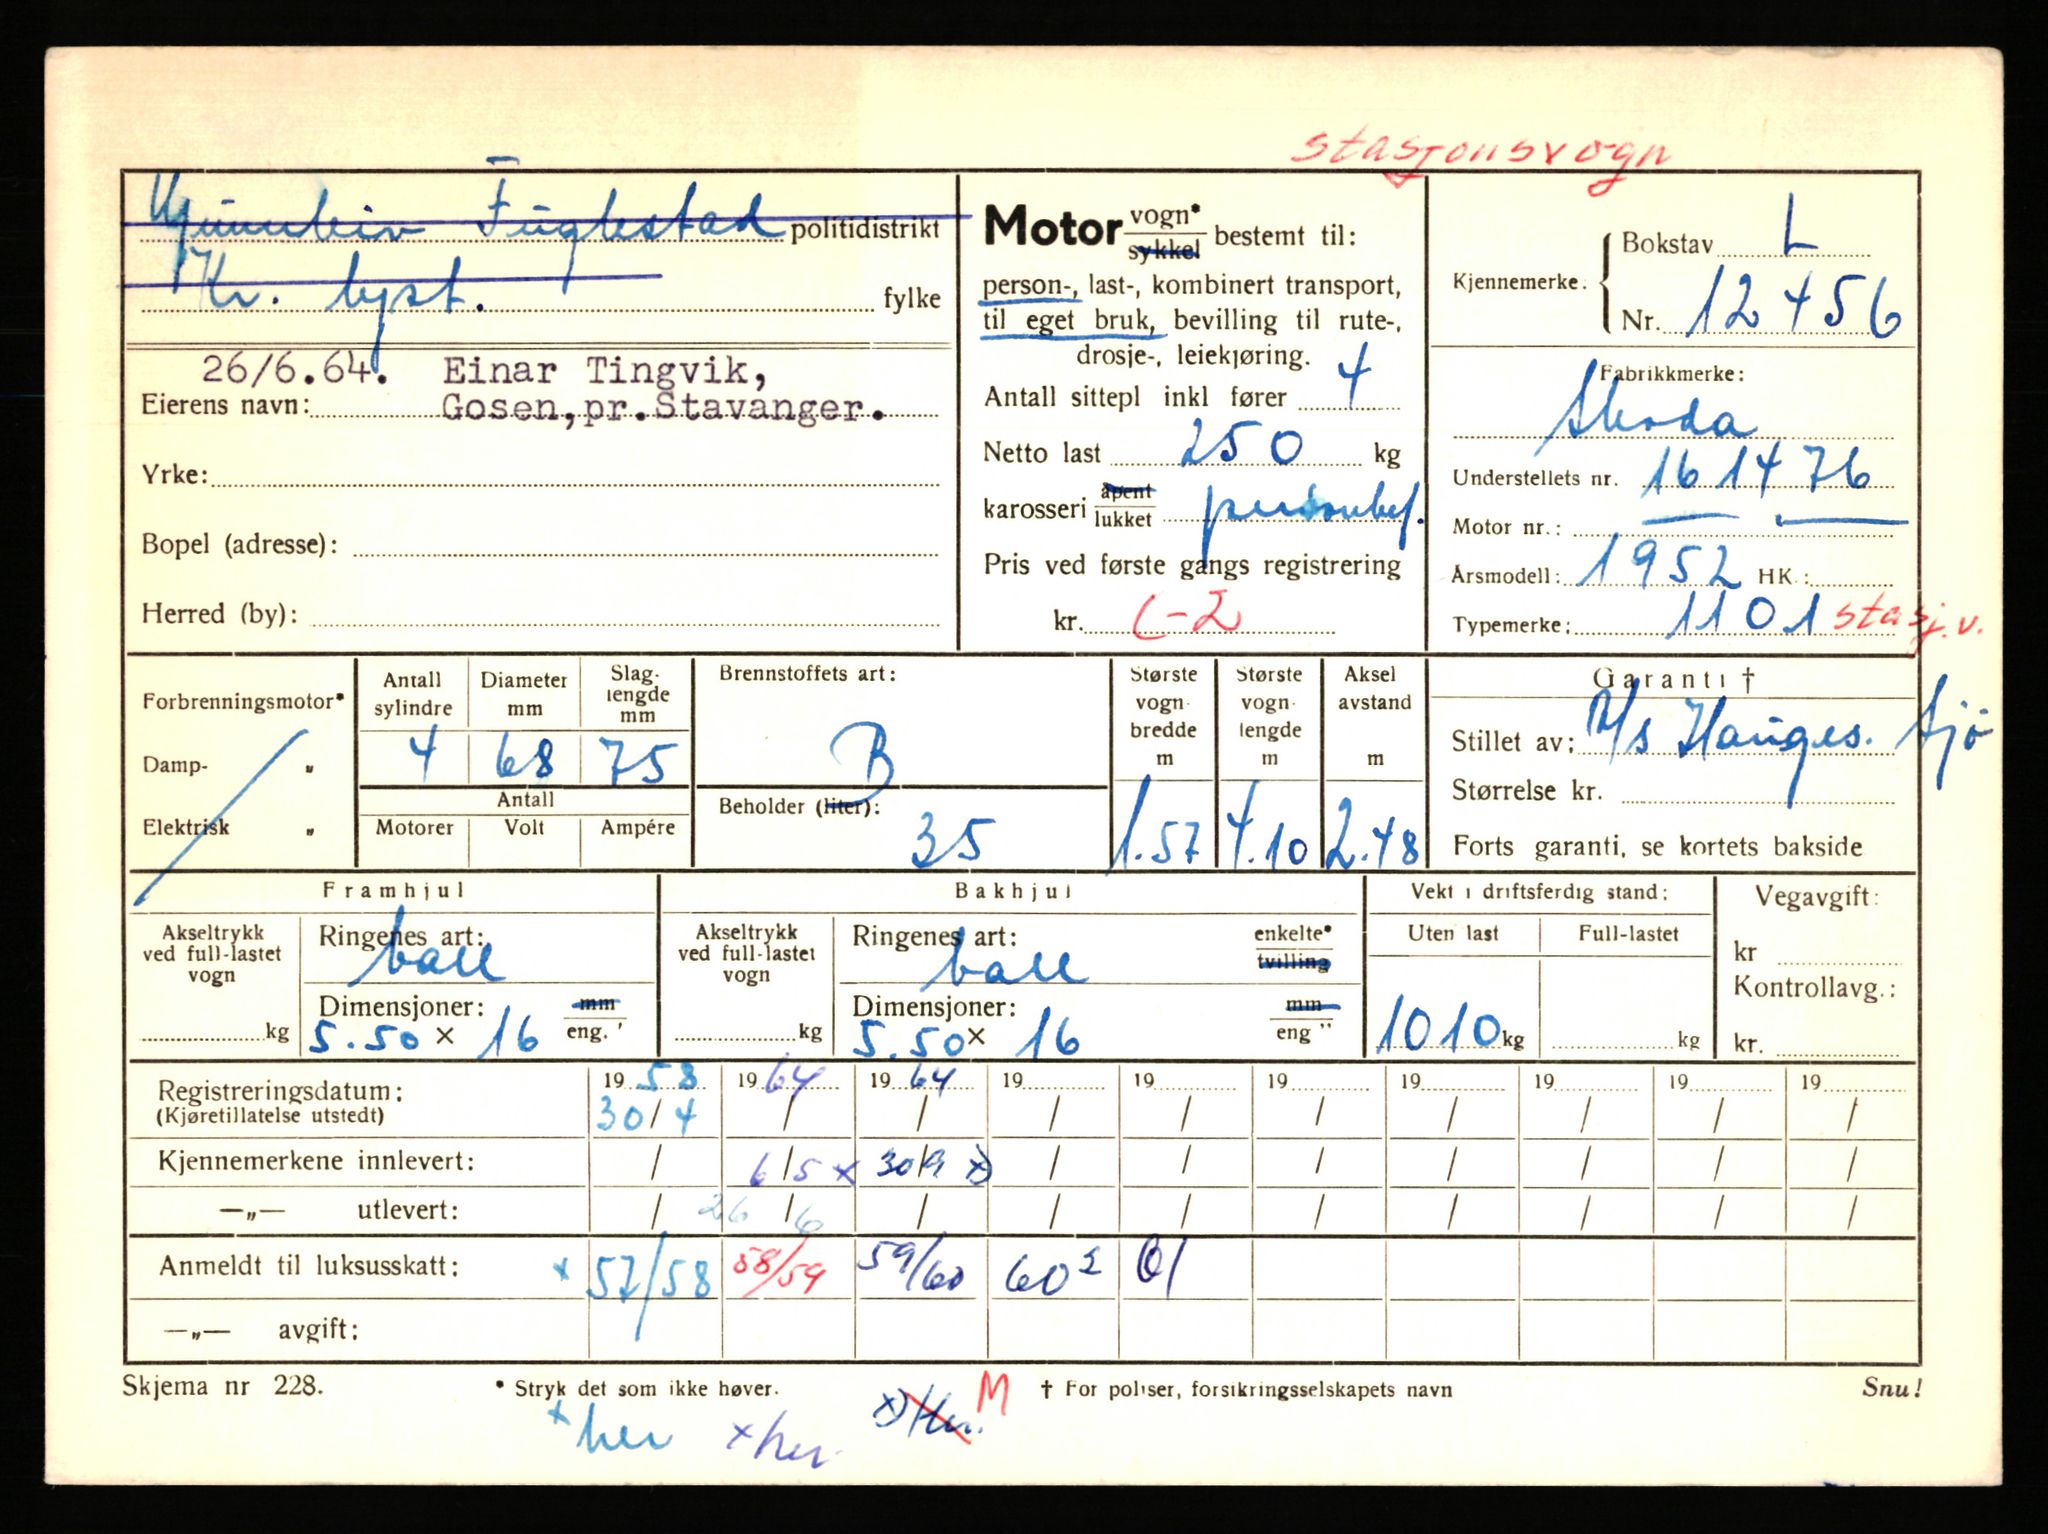 stasjonsvogn
Fuglestad politidistrikt
Kr. byst. fylke
26/6.64. Einar Tingvik,
Eierens navn: Gosen, pr. Stavanger.
Yrke:
Bopel (adresse):
Herred (by):
Motor vogn* / sykkel bestemt til:
person-, last-, kombinert transport,
til eget bruk, bevilling til rute-,
drosje-, leiekjøring.
Antall sittepl inkl fører 4
Netto last 250 kg
karosseri åpent / lukket personbef.
Pris ved første gangs registrering
kr. L-2
Kjennemerke: Bokstav L
Nr. 12456
Fabrikkmerke:
Skoda
Understellets nr. 161476
Motor nr.: — —
Årsmodell: 1952 HK.:
Typemerke: 1101 stasj.v.
Forbrenningsmotor*
Damp- "
Elektrisk "
Antall sylindre 4
Diameter mm 68
Slag-lengde mm 75
Antall
Motorer Volt Ampére
Brennstoffets art:
B
Beholder (liter):
35
Største vogn-bredde m 1.57
Største vogn-lengde m 4.10
Aksel avstand m 2.48
Garanti †
Stillet av: A/s Hauges. Sjø
Størrelse kr.
Forts garanti, se kortets bakside
Framhjul
Akseltrykk ved full-lastet vogn
kg
Ringenes art:
ball
Dimensjoner: mm / eng. '
5.50 x 16
Bakhjul
Akseltrykk ved full-lastet vogn
kg
Ringenes art: enkelte* / tvilling
ball
Dimensjoner: mm / eng "
5.50 x 16
Vekt i driftsferdig stand:
Uten last Full-lastet
1010 kg kg
Vegavgift:
kr
Kontrollavg.:
kr.
Registreringsdatum: 19 58 19 64 19 64 19 19 19 19 19 19 19
(Kjøretillatelse utstedt) 30/4 / / / / / / / / /
Kjennemerkene innlevert: / 6/5 x 30/9 x) / / / / / / /
—„— utlevert: / 26/6 / / / / / / / /
Anmeldt til luksusskatt: x 57/58 58/59 59/60 60² 61
—„— avgift:
Skjema nr 228. * Stryk det som ikke høver. † For poliser, forsikringsselskapets navn Snu!
x her x her. x) Her. M